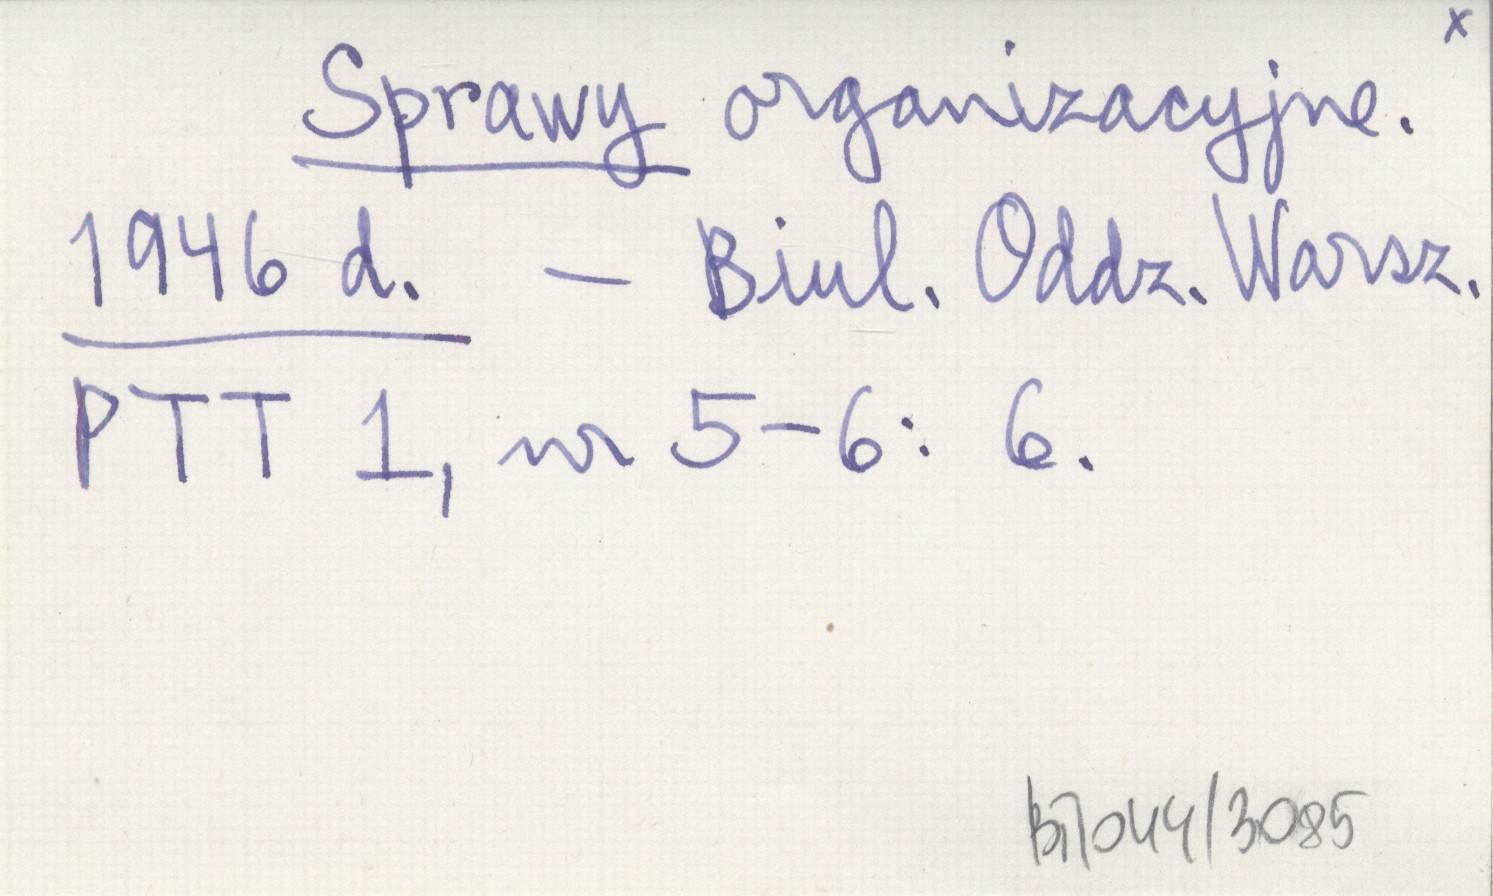 x
Sprawy organizacyjne.
1946 d. – Biul. Oddz. Warsz.
PTT 1, nr 5–6: 6.
BT/044/3085